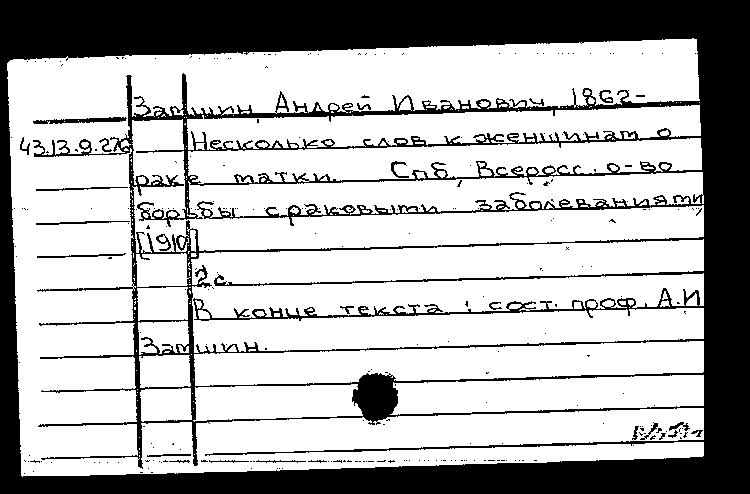 Замшин, Андрей Иванович, 1862-
43.13.9.276 Несколько слов к женщинам о
раке матки. Спб, Всеросс. о-во
борьбы с раковыми заболеваниями,
[1910]
2 с.
В конце текста: сост. проф. А.И
Замшин.